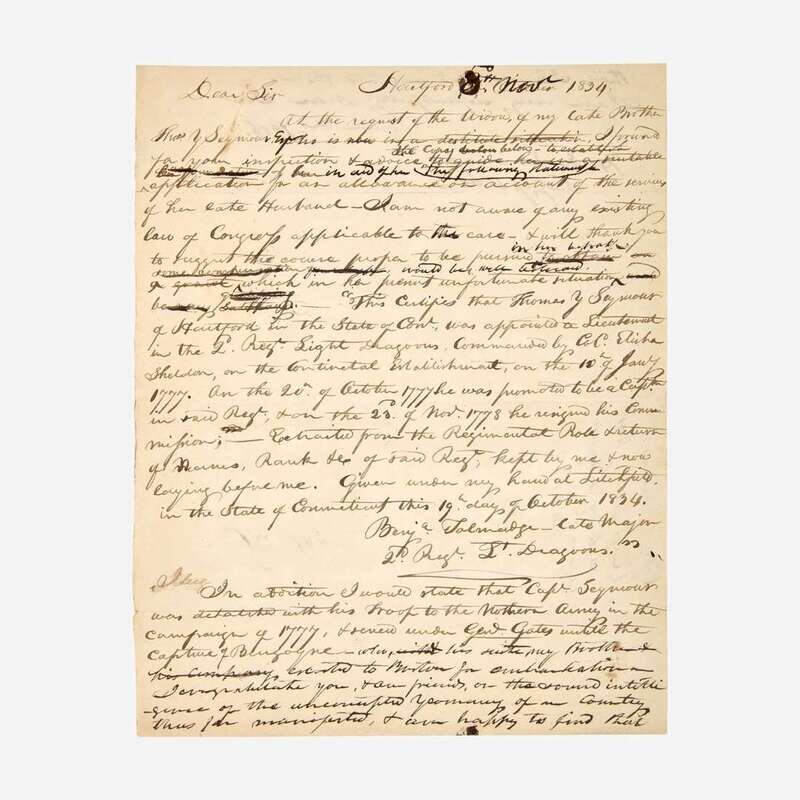 Hartford 5th Novr 1834.
Dear Sir
At the request of the Widow of my late Brother
Thos Y Seymour, Esqr who is now in a destitute situation, I forward
the Copy below
for your inspection & advice to guide
in aid of her the following
application for an allowance on account of the services
of her late Husband – I am not aware of any existing
law of Congress applicable to the case – & will thank you
in her behalf
to suggest the course proper to be pursued
would be well
which in her present unfortunate situation
– "This Certifies that Thomas Y Seymour
of Hartford in the State of Con. was appointed a Lieutenant
in the 2d. Regt. Light Dragoons, Commanded by Col. Elisha
Sheldon, on the Continental Establishment, on the 10th of Jany
1777. On the 20th of October 1777 he was promoted to be a Capt.
in said Regt, & on the 23d of Novr. 1778 he resigned his Com-
mission; – Extracted from the Regimental Role & return
of Names, Rank &c of said Regt, kept by me & now
laying before me. Given under my hand at Litchfield,
in the State of Connecticut this 19th day of October 1834.
Benja Talmadge – late Major
2d Regt. Lt. Dragoons. "
In addition I would state that Capt. Seymour
was detached with his Troop to the Northern Army in the
campaign of 1777, & served under Genl. Gates untill the
Capture of Burgoyne – who, with his suite, my Brother &
his company escorted to Boston for embarkation –
I congratulate you, & our friends, on the sound intelli
-gence of the uncorrupted Yeomanry of our Country
thus far manifested, & am happy to find that